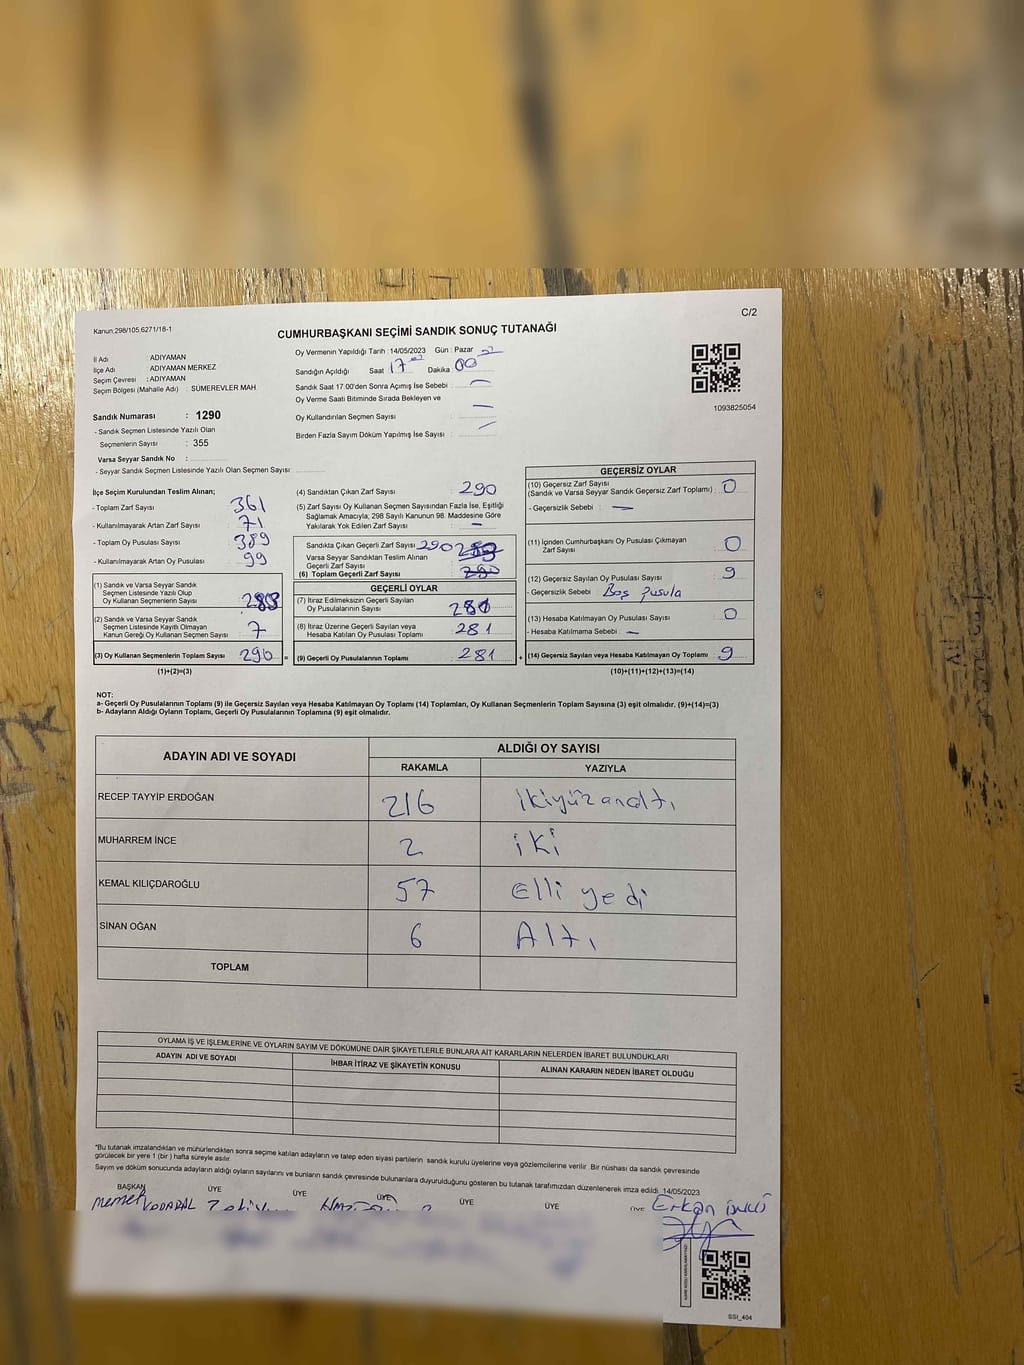 Kanun,298/105,6271/18-1
C/2
CUMHURBAŞKANI SEÇİMİ SANDIK SONUÇ TUTANAĞI
İl Adı : ADIYAMAN
İlçe Adı : ADIYAMAN MERKEZ
Seçim Çevresi : ADIYAMAN
Seçim Bölgesi (Mahalle Adı) : SÜMEREVLER MAH
Sandık Numarası : 1290
- Sandık Seçmen Listesinde Yazılı Olan
Seçmenlerin Sayısı : 355
Varsa Seyyar Sandık No :
- Seyyar Sandık Seçmen Listesinde Yazılı Olan Seçmen Sayısı :
Oy Vermenin Yapıldığı Tarih : 14/05/2023 Gün : Pazar
Sandığın Açıldığı Saat 17 Dakika 00
Sandık Saat 17:00'den Sonra Açımış İse Sebebi :
Oy Verme Saati Bitiminde Sırada Bekleyen ve
Oy Kullandırılan Seçmen Sayısı :
Birden Fazla Sayım Döküm Yapılmış İse Sayısı :
1093825054
İlçe Seçim Kurulundan Teslim Alınan;
- Toplam Zarf Sayısı : 361
- Kullanılmayarak Artan Zarf Sayısı : 71
- Toplam Oy Pusulası Sayısı : 389
- Kullanılmayarak Artan Oy Pusulası : 99
(1) Sandık ve Varsa Seyyar Sandık
Seçmen Listesinde Yazılı Olup
Oy Kullanan Seçmenlerin Sayısı :
(2) Sandık ve Varsa Seyyar Sandık
Seçmen Listesinde Kayıtlı Olmayan
Kanun Gereği Oy Kullanan Seçmen Sayısı : 7
(3) Oy Kullanan Seçmenlerin Toplam Sayısı : 290
(1)+(2)=(3)
(4) Sandıktan Çıkan Zarf Sayısı : 290
(5) Zarf Sayısı Oy Kullanan Seçmen Sayısından Fazla İse, Eşitliği
Sağlamak Amacıyla, 298 Sayılı Kanunun 98. Maddesine Göre
Yakılarak Yok Edilen Zarf Sayısı : —
Sandıkta Çıkan Geçerli Zarf Sayısı : 290
Varsa Seyyar Sandıktan Teslim Alınan
Geçerli Zarf Sayısı :
(6) Toplam Geçerli Zarf Sayısı : 290
GEÇERLİ OYLAR
(7) İtiraz Edilmeksizin Geçerli Sayılan
Oy Pusulalarının Sayısı : 281
(8) İtiraz Üzerine Geçerli Sayılan veya
Hesaba Katılan Oy Pusulası Toplamı : 281
= (9) Geçerli Oy Pusulalarının Toplamı : 281
GEÇERSİZ OYLAR
(10) Geçersiz Zarf Sayısı
(Sandık ve Varsa Seyyar Sandık Geçersiz Zarf Toplamı) : 0
- Geçersizlik Sebebi : —
(11) İçinden Cumhurbaşkanı Oy Pusulası Çıkmayan
Zarf Sayısı : 0
(12) Geçersiz Sayılan Oy Pusulası Sayısı : 9
- Geçersizlik Sebebi : Boş pusula
(13) Hesaba Katılmayan Oy Pusulası Sayısı : 0
- Hesaba Katılmama Sebebi : —
+ (14) Geçersiz Sayılan veya Hesaba Katılmayan Oy Toplamı : 9
(10)+(11)+(12)+(13)=(14)
NOT:
a- Geçerli Oy Pusulalarının Toplamı (9) ile Geçersiz Sayılan veya Hesaba Katılmayan Oy Toplamı (14) Toplamları, Oy Kullanan Seçmenlerin Toplam Sayısına (3) eşit olmalıdır. (9)+(14)=(3)
b- Adayların Aldığı Oyların Toplamı, Geçerli Oy Pusulalarının Toplamına (9) eşit olmalıdır.
ADAYIN ADI VE SOYADI ALDIĞI OY SAYISI
RAKAMLA YAZIYLA
RECEP TAYYİP ERDOĞAN 216 ikiyüz onaltı
MUHARREM İNCE 2 iki
KEMAL KILIÇDAROĞLU 57 Elli yedi
SİNAN OĞAN 6 Altı
TOPLAM
OYLAMA İŞ VE İŞLEMLERİNE VE OYLARIN SAYIM VE DÖKÜMÜNE DAİR ŞİKAYETLERLE BUNLARA AİT KARARLARIN NELERDEN İBARET BULUNDUKLARI
ADAYIN ADI VE SOYADI İHBAR İTİRAZ VE ŞİKAYETİN KONUSU ALINAN KARARIN NEDEN İBARET OLDUĞU
*Bu tutanak imzalandıktan ve mühürlendikten sonra seçime katılan adayların ve talep eden siyasi partilerin sandık kurulu üyelerine veya gözlemcilerine verilir. Bir nüshası da sandık çevresinde
görülecek bir yere 1 (bir) hafta süreyle asılır.
Sayım ve döküm sonucunda adayların aldığı oyların sayılarını ve bunların sandık çevresinde bulunanlara duyurulduğunu gösteren bu tutanak tarafımızdan düzenlenerek imza edildi. 14/05/2023
BAŞKAN ÜYE ÜYE ÜYE ÜYE ÜYE ÜYE
Erkan
SSI_404